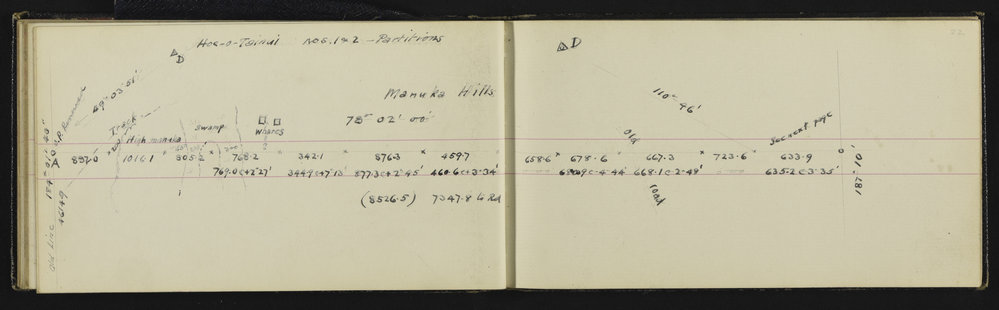 Hoe-o-Tainui Nos. 1 & 2 - Partitions
D
69° 03' 51"
Manuka Hills
78° 02' 00"
Track
High manuka
Swamp
Whares
184° 01' 40"
A
1016.1 805.2 768.2 342.1 876.3 459.7
769.0 c +2°27' 344.9 +7°13' 877.3 c +2°45' 460.6 c +3°34'
(8526.5) 7347.8 G Rd
4614.9
Old Line
22
D
110° 46'
See next page
Old
658.6 678.6 667.3 723.6 633.9
668.1 c 2°48' 635.2 c 3°35'
road
187° 10'